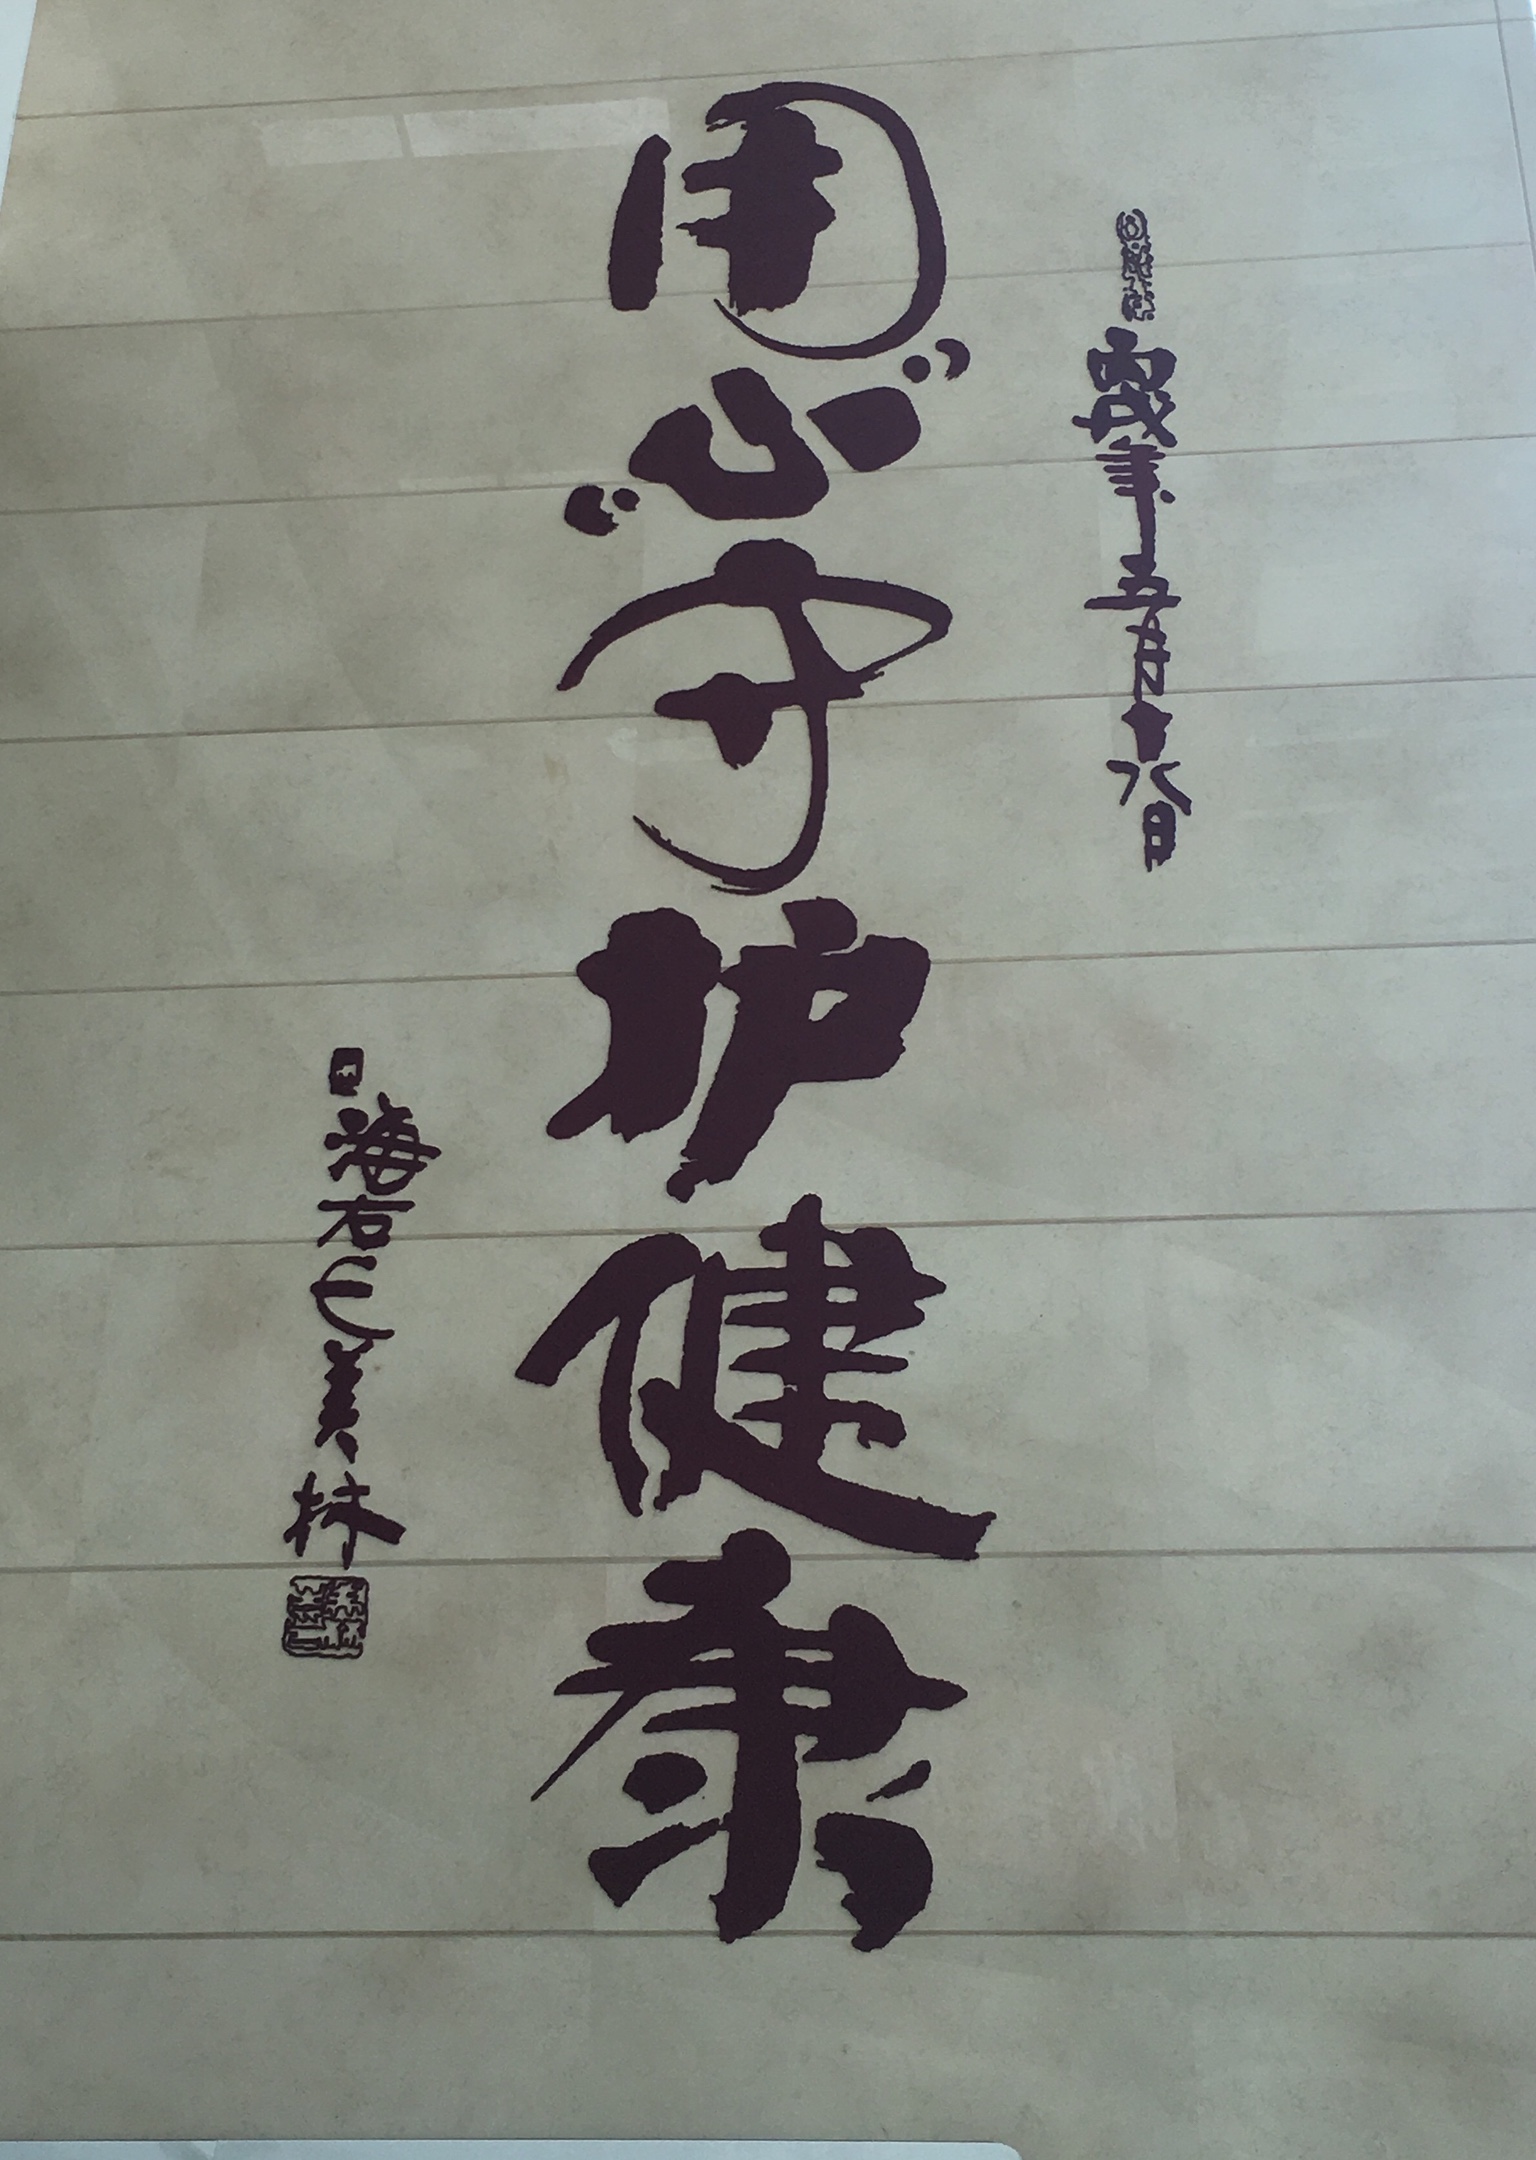 丙戌年五月十八日
用“心”守护健康
海右美林